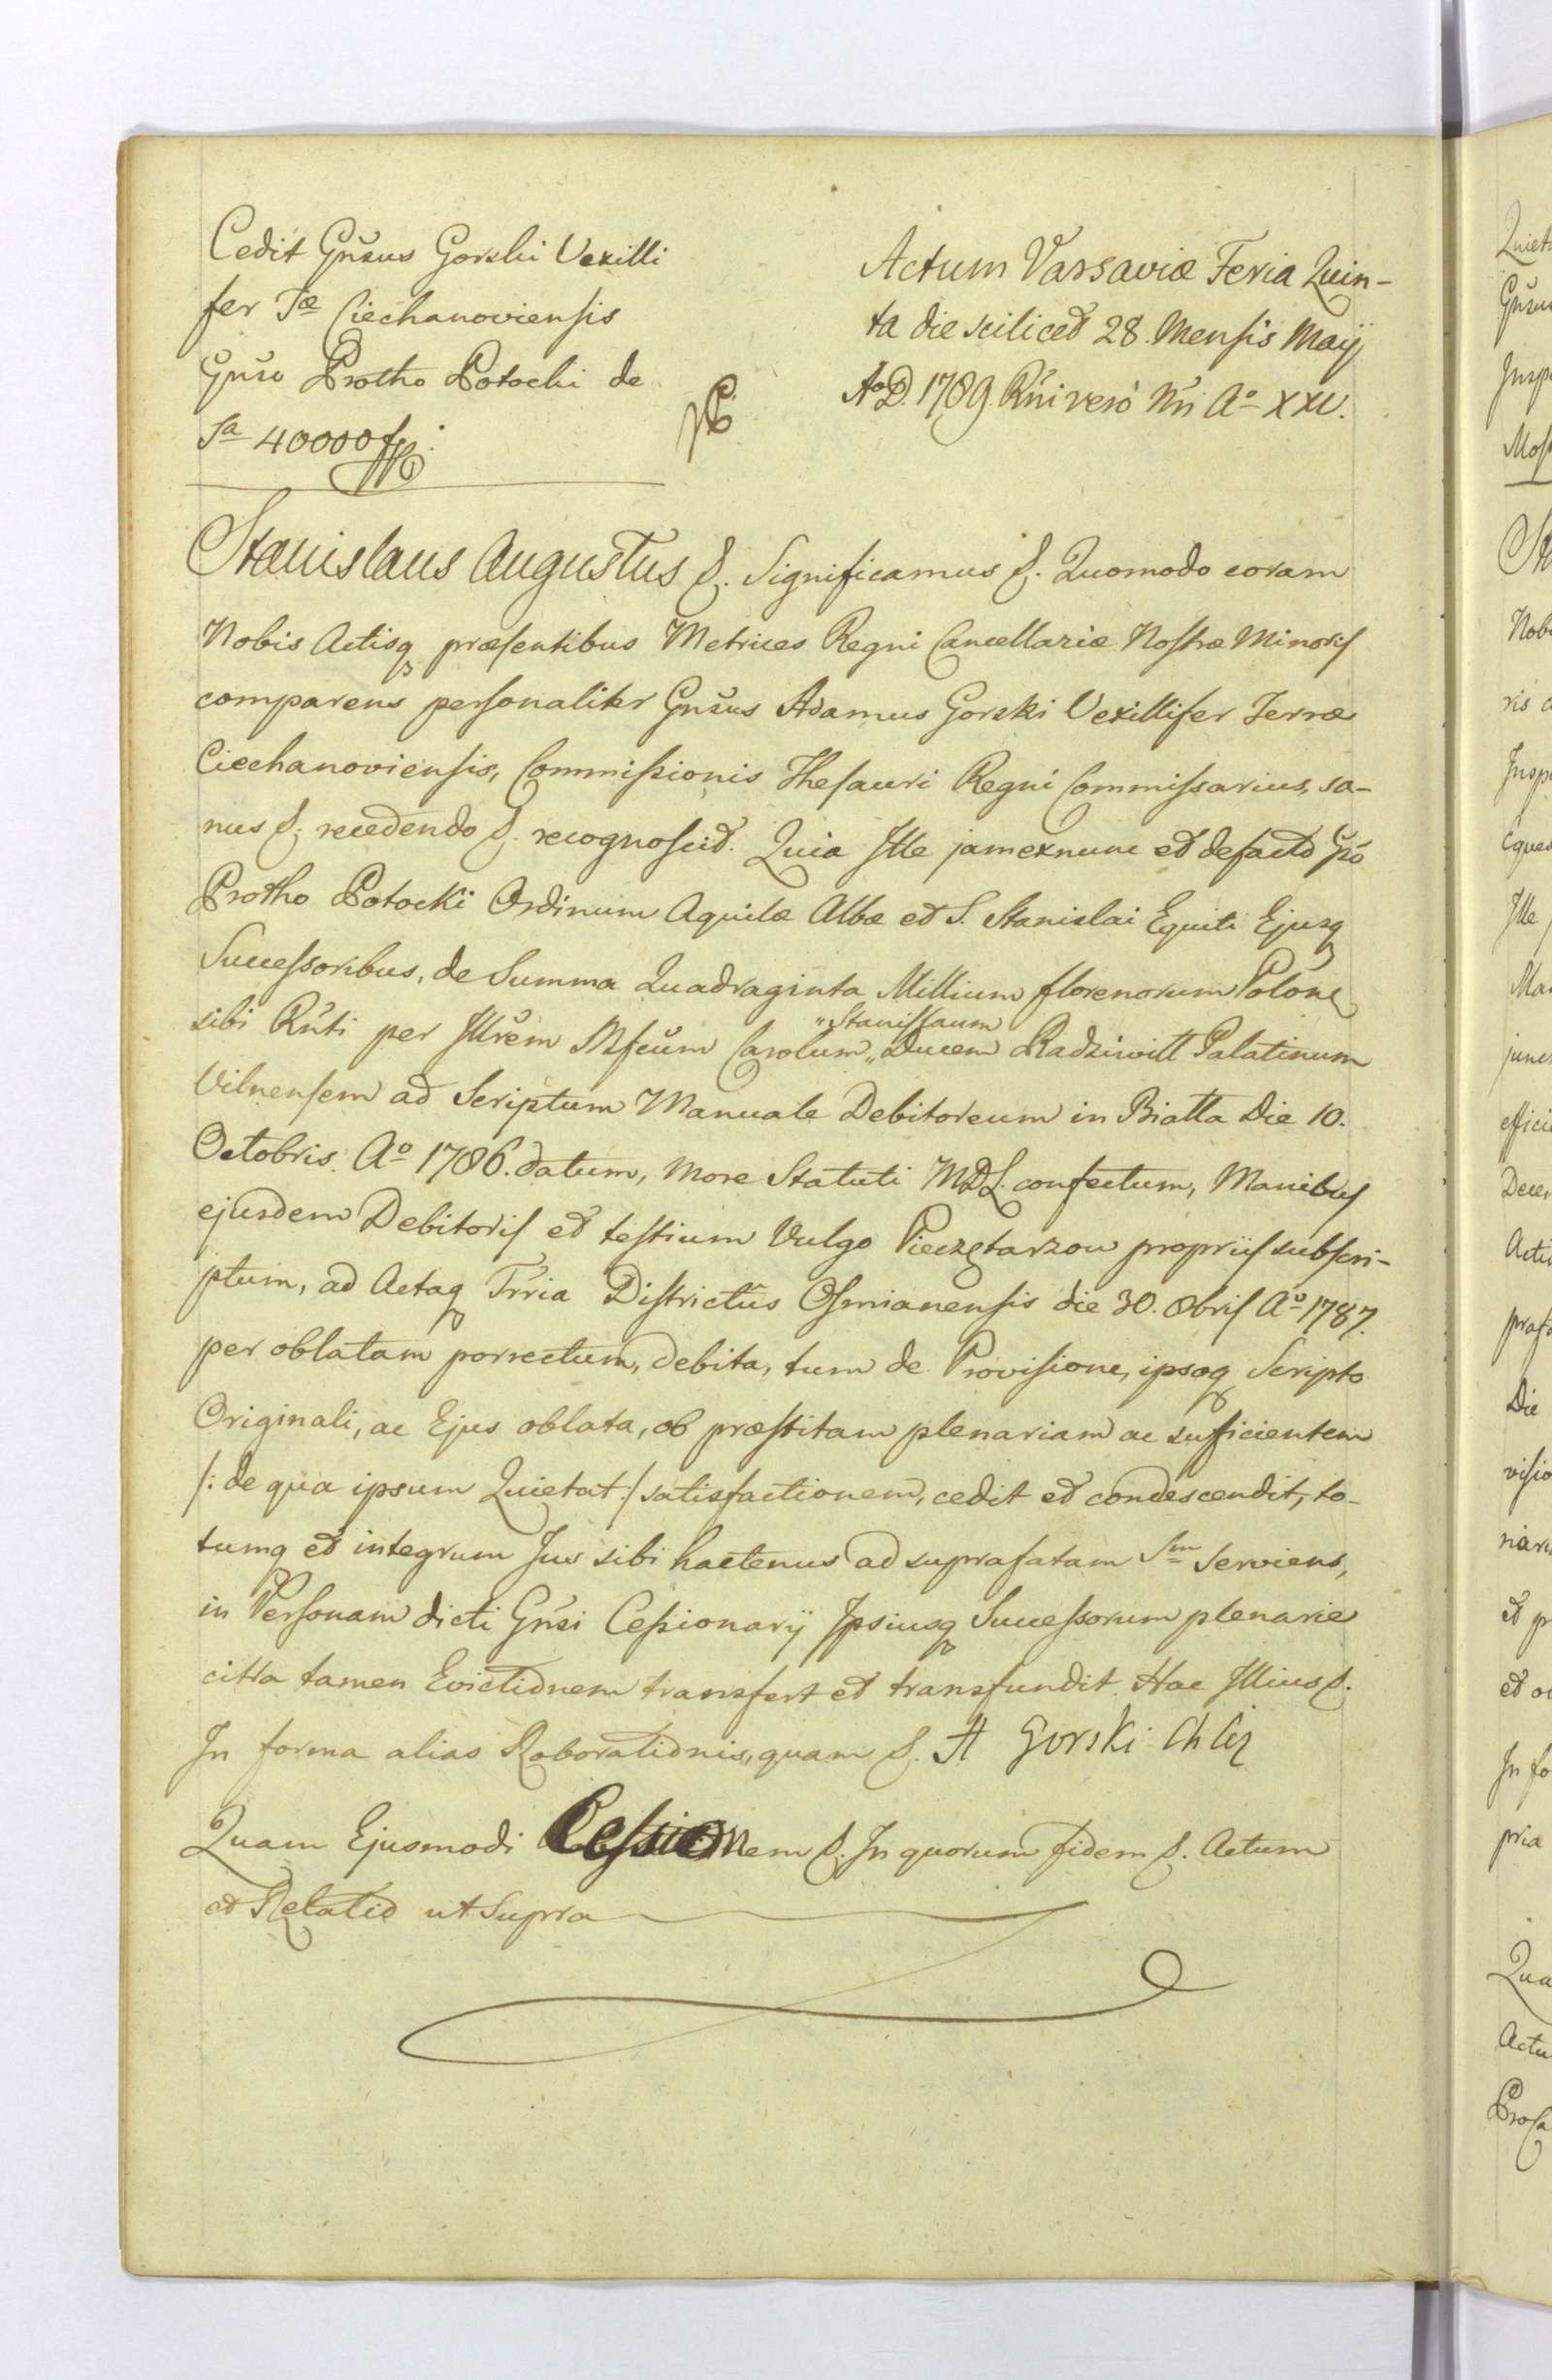 Cedit Gnŝus Gorski Vexilli
fer Tæ Ciechanoviensis
Gnŝo Protho Potocki de
Sa 40000 fp.
Actum Varsaviæ Feria Quin-
ta die scilicet 28. Mensis Maij
Ao D. 1789. Rńi vero Nŕi Ao XXV.
Stanislaus Augustus &. Significamus &. Quomodo coram
Nobis Actisq præsentibus Metrices Regni Cancellariæ Nostræ Minoris
comparens personaliter Gnŝus Adamus Gorski Vexillifer Terræ
Ciechanoviensis, Commissionis Thesauri Regni Commissarius, sa-
nus &. recedendo &. recognoscit. Quia Ille jam exnunc et de facto Gńo
Protho Potocki Ordinum Aquilæ Albæ et S. Stanislai Equiti Ejusq
Successoribus, de Summa Quadraginta Millium florenorum Polone
sibi Rńti per Illŕem Mfcům Carolum „Stanislaum „Ducem Radziwiłł Palatinum
Vilnensem ad Scriptum Manuale Debitoreum in Biatta Die 10.
Octobris Ao 1786. datum, more Statuti MDL. confectum, Manibus
ejusdem Debitoris et testium Vulgo Pieczętarzow propriis subscri-
ptum, ad Actaq Tŕria Districtûs Osmianensis die 30. 8bris Ao 1787.
per oblatam porrectum, debita, tum de Provisione, ipsoq Scripto
Originali, ac Ejus oblata, ob præstitam plenariam ac sufficientem
/: de qua ipsum Quietat :/ satisfactionem, cedit et condescendit, to-
tumq et integrum Jus sibi hactenus ad suprafatam Sm Serviens,
in Personam dicti Gńsi Cessionarij Ipsiusq Successorum plenarie
citra tamen Evictionem transfert et transfundit. Hac Illius &.
In forma alias Roborationis, quam &. A Gorski Ch Cie
Quam Ejusmodi Cessionem &. In quorum fidem &. Actum
et Relatio ut Supra